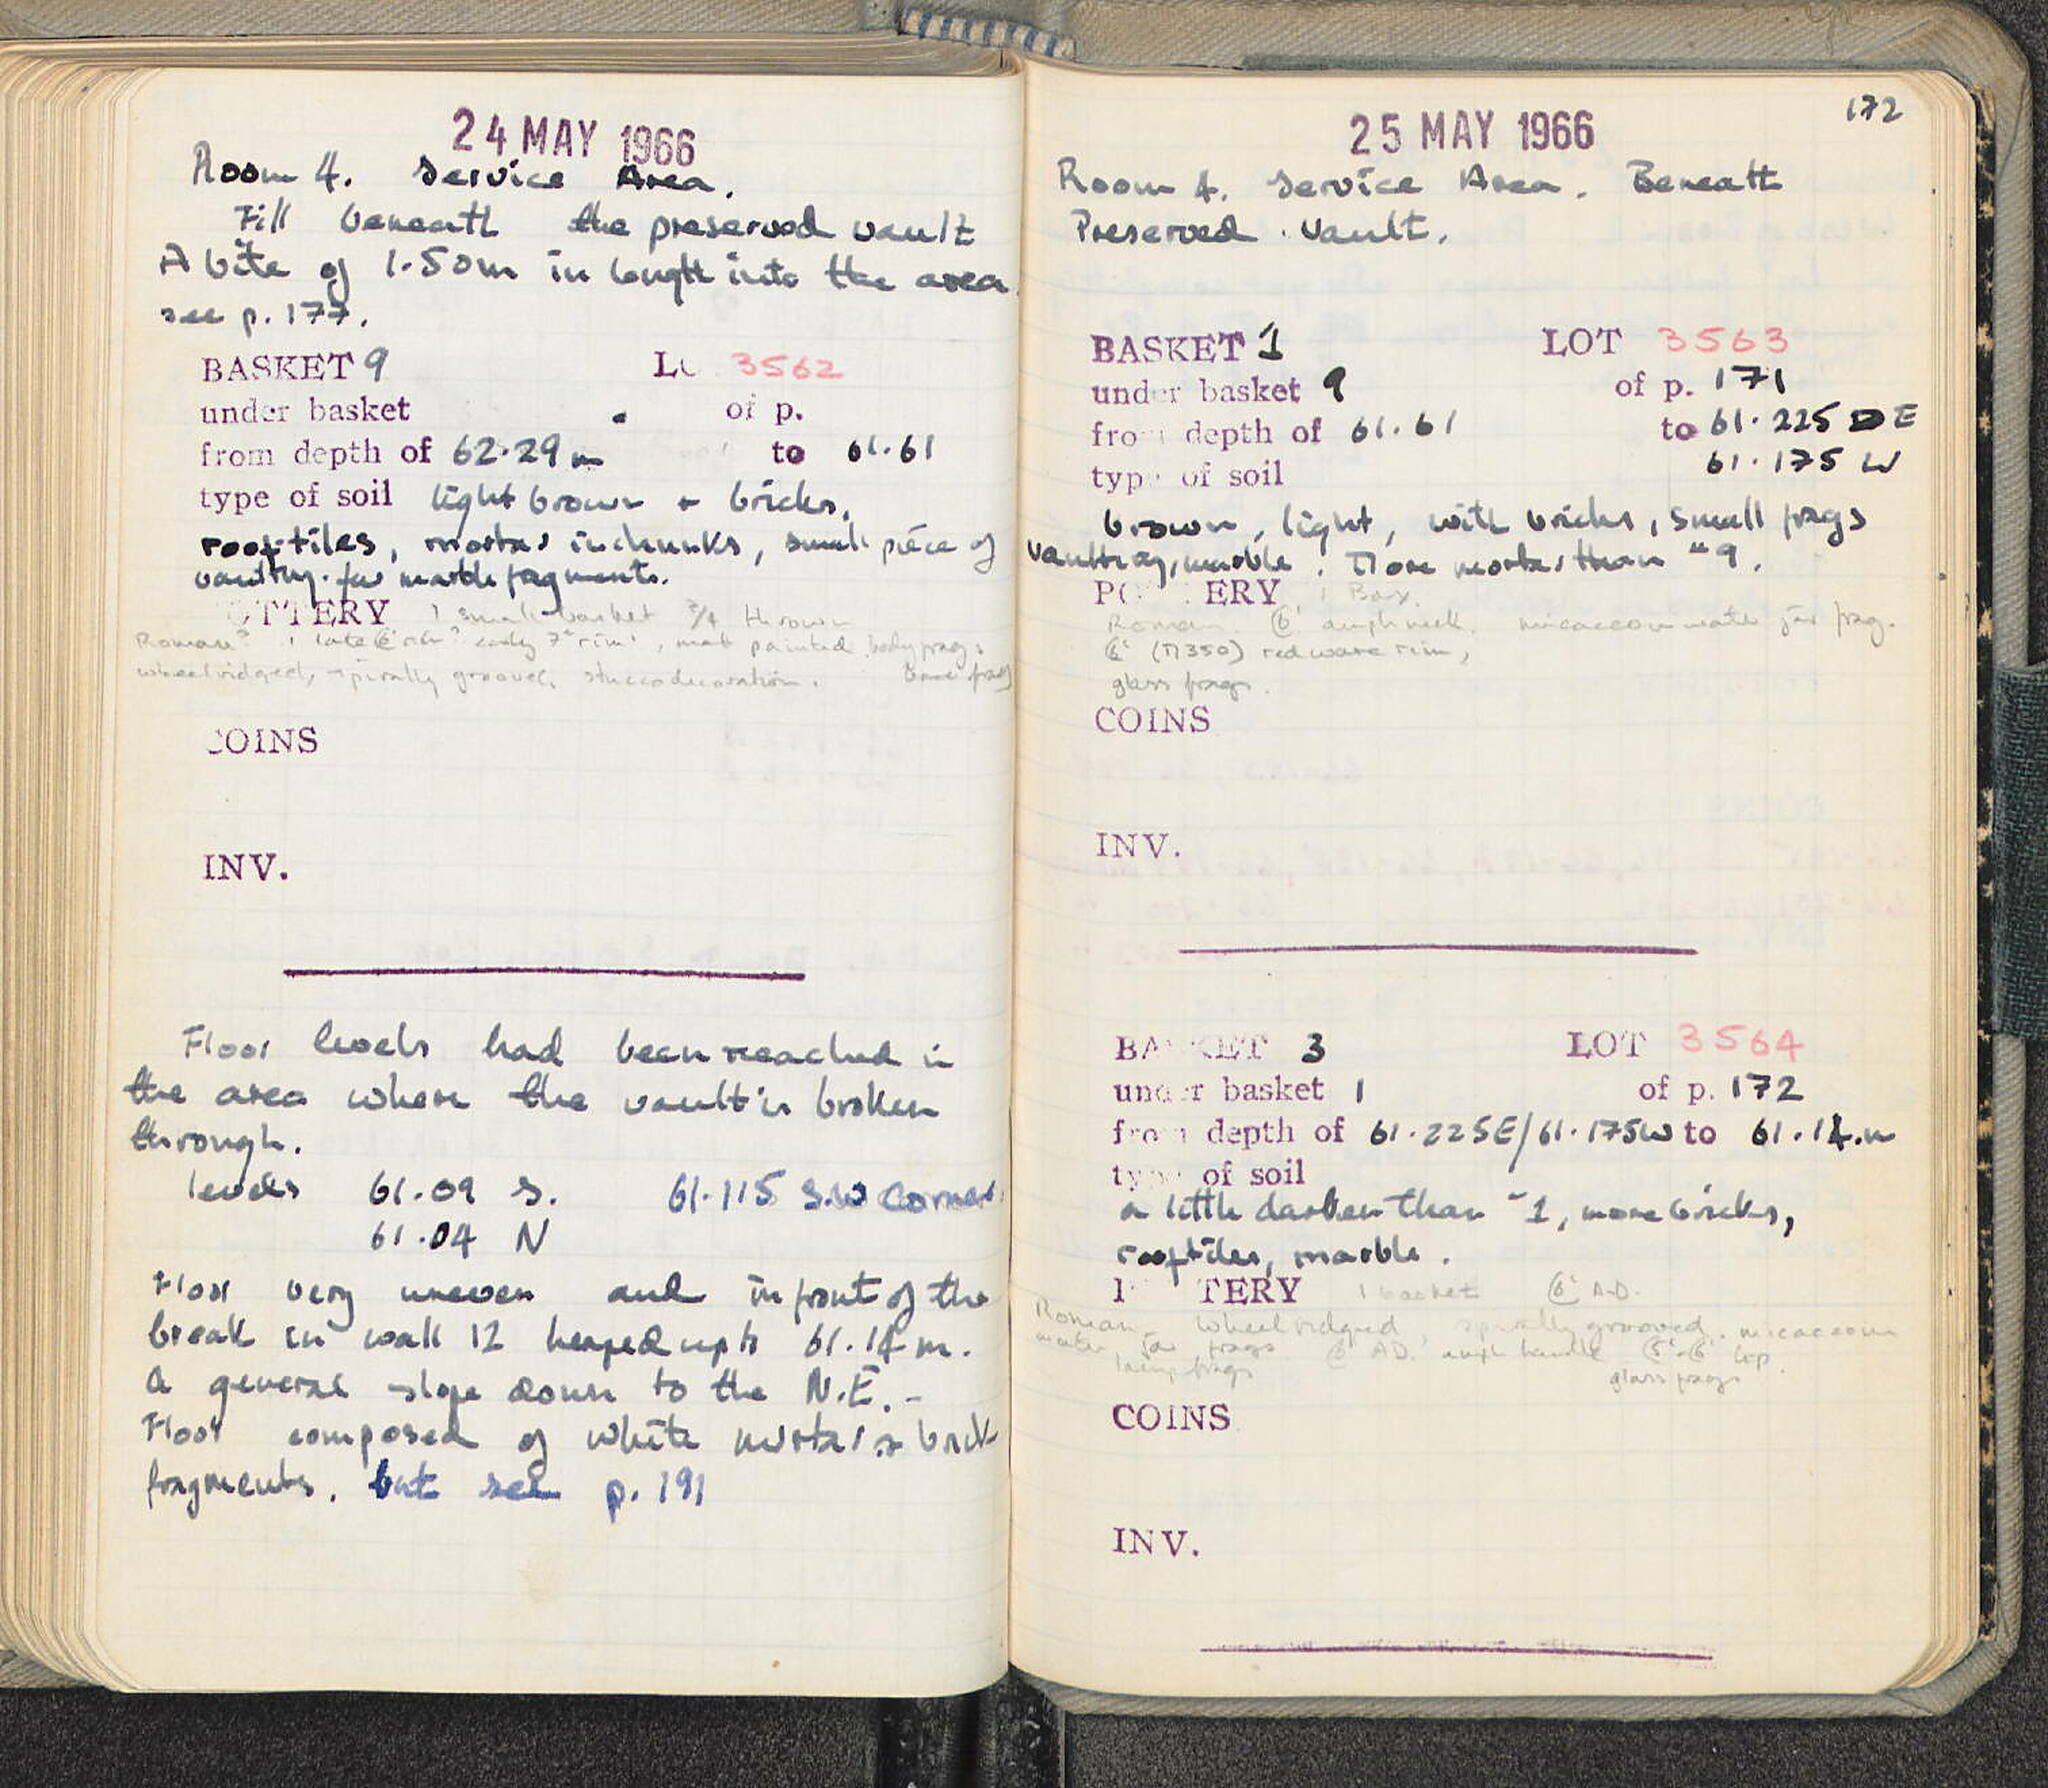 24 MAY 1966
Room 4. Service Area.
Fill beneath the preserved vault
A bite of 1.50m in length into the area
see p. 177.
BASKET 9 LO 3562
under basket of p.
from depth of 62.29 m to 61.61
type of soil light brown + bricks,
rooftiles, mortar in chunks, small piece of
vaulting. few marble fragments.
OTTERY 1 small basket 3/4 thrown
Roman? 1 late rim? early 7" rim, matt painted body frags
wheelridged, spirally grooved, stucco decoration.
COINS
INV.
Floor levels had been reached in
the area where the vault is broken
through.
levels 61.09 S. 61.115 S.W corner
61.04 N
Floor very uneven and in front of the
break in wall 12 heaped up to 61.14 m.
A general slope down to the N.E. -
Floor composed of white mortar + brick
fragments. but see p. 191
172
25 MAY 1966
Room 4. Service Area. Beneath
Preserved vault.
BASKET 1 LOT 3563
under basket 9 of p. 171
from depth of 61.61 to 61.225 E
61.175 W
type of soil
brown, light, with bricks, small frags
vaulting, marble. More mortar than #9.
POTTERY 1 Box.
Roman. 6' amph neck. micaceous water jar frag.
(T1350) red ware rim,
glass frags.
COINS
INV.
BASKET 3 LOT 3564
under basket 1 of p. 172
from depth of 61.225E/61.175W to 61.14.m
type of soil
a little darker than 1, more bricks,
rooftiles, marble.
POTTERY 1 basket 6' A.D.
Roman wheelridged, spirally grooved. micaceous
water jar frags 6' AD. amph handle
lamp frags glass frags
COINS
INV.